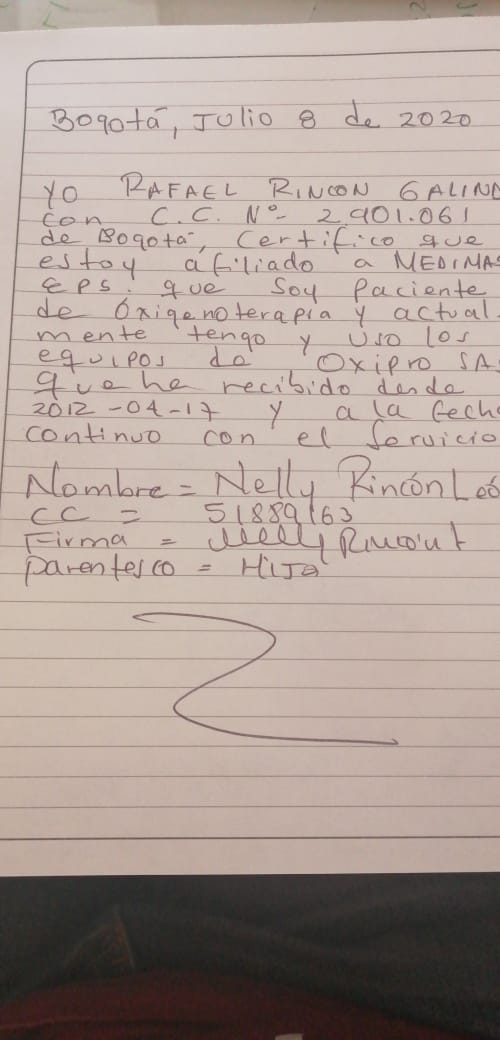 Bogotá, Julio 8 de 2020
YO RAFAEL RINCON GALIND
con C.C. Nº 2.901.061
de Bogotá, Certifico que
estoy afiliado a MEDIMAS
EPS. que soy paciente
de Óxigenoterapia y actual-
mente tengo y uso los
equipos de OXIPRO SAS
que he recibido desde
2012-04-17 y a la fecha
continuo con el servicio
Nombre = Nelly Rincón Leó
CC = 51889163
Firma = Nelly Rincón L
parentesco = Hija